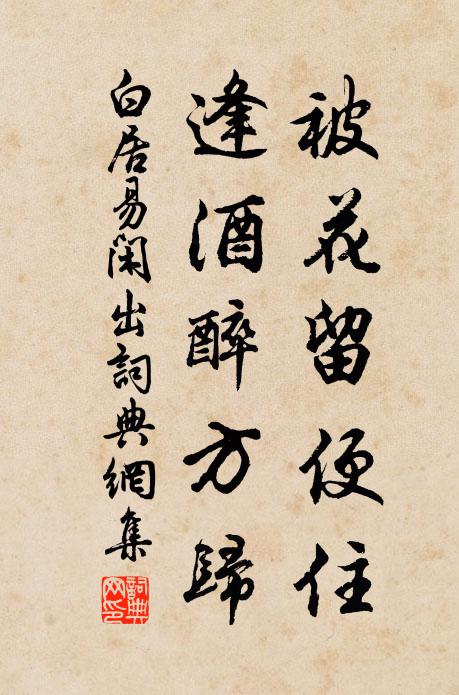 被花留便住
逢酒醉方歸
白居易閑出詞典網集
詞典网印